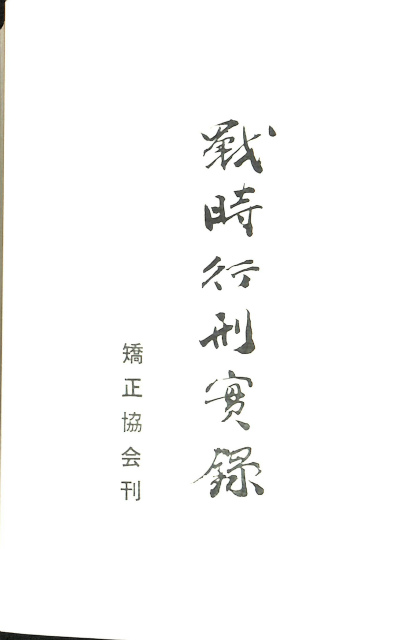 戰時行刑實錄
矯正協会刊